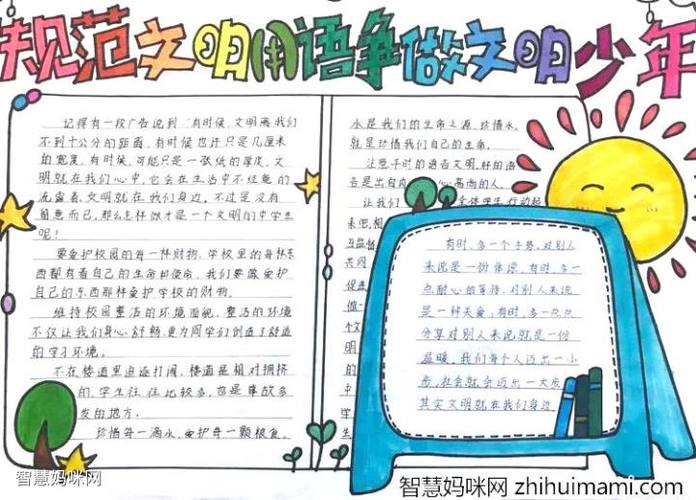 规范文明用语争做文明少年
记得有一段广告说到:有时候,文明离我们
不到十公分的距离,有时候也许只是几厘米
的宽度,有时候,可能只是一张纸的厚度。文
明就在我们心中,它会在生活中不经意的
流露着,文明就在我们身边,不过是没有
留意而已,那么怎样做才是一个文明的中学生
呢!
要爱护校园的每一样财物,学校里的每样东
西都有着自己的生命和使命,我们要像爱护
自己的东西那样爱护学校的财物。
维持校园整洁的环境面貌,整洁的环境
不仅让我们身心舒畅,更为同学们创造了舒适
的学习环境。
不在楼道里追逐打闹,楼道是相对拥挤
的,学生往往比较多,也是事故多
发的地方。
珍惜每一滴水,爱护每一颗粮食。
水是我们的生命之源,珍惜水,
就是珍惜我们自己的生命。
注意平时的语言文明,
者是出自 心 高尚的人。
让我们 全体学生行动起
来吧,
共同
促进
做
个文
明的
中
学生
有时,多一个手势,对别人
来说是一份体谅,有时,多一
点耐心的等待,对别人来说
是一种关爱,有时,多一点点
分享对别人来说就是一份
温暖,我们每个人迈出一小
步,社会就会迈出一大步
其实文明就在我们身边
智慧妈咪网
智慧妈咪网 zhihuimami.com